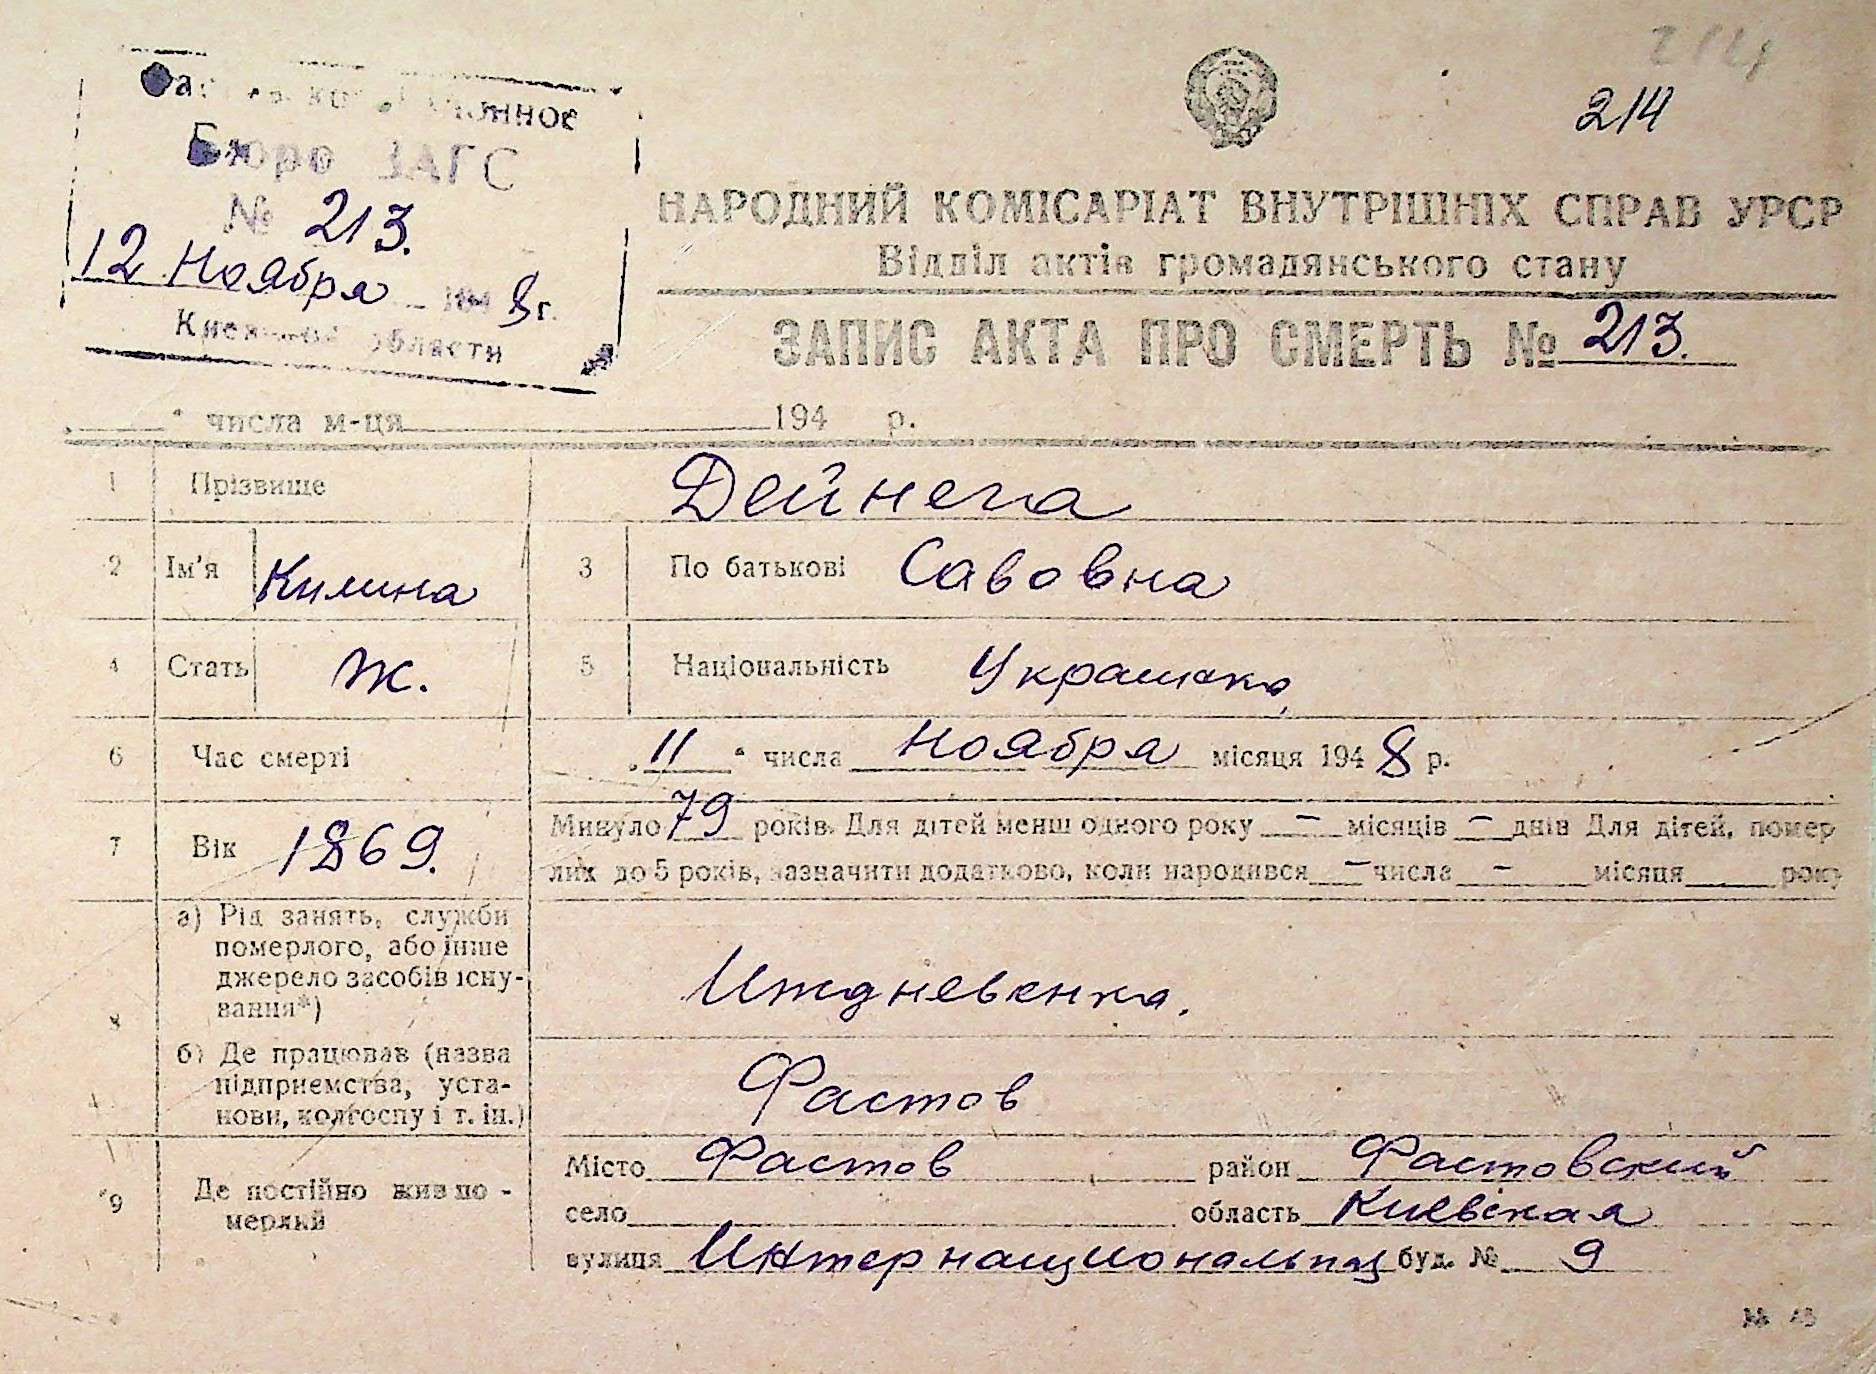 214
214
Бюро ЗАГС
№ 213.
12 Ноября 1948г.
области
НАРОДНИЙ КОМІСАРІАТ ВНУТРІШНІХ СПРАВ УРСР
Відділ актів громадянського стану
ЗАПИС АКТА ПРО СМЕРТЬ № 213.
„ “ числа м-ця 194 р.
1 Прізвище Дейнега
2 Ім'я Килина 3 По батькові Савовна
4 Стать Ж. 5 Національність Украинка
6 Час смерті „11“ числа Ноября місяця 1948 р.
7 Вік 1869. Минуло 79 років. Для дітей менш одного року – місяців – днів Для дітей, помер
лих до 5 років, зазначити додатково, коли народився – числа – місяця року
8 а) Рід занять, служби
померлого, або інше
джерело засобів існу-
вання*) Иждневенка.
б) Де працював (назва
підприємства, уста-
нови, колгоспу і т. ін.) Фастов
9 Де постійно жив по-
мерлий
Місто Фастов район Фастовский
село область Киевская
вулиця Интернациональная буд. № 9